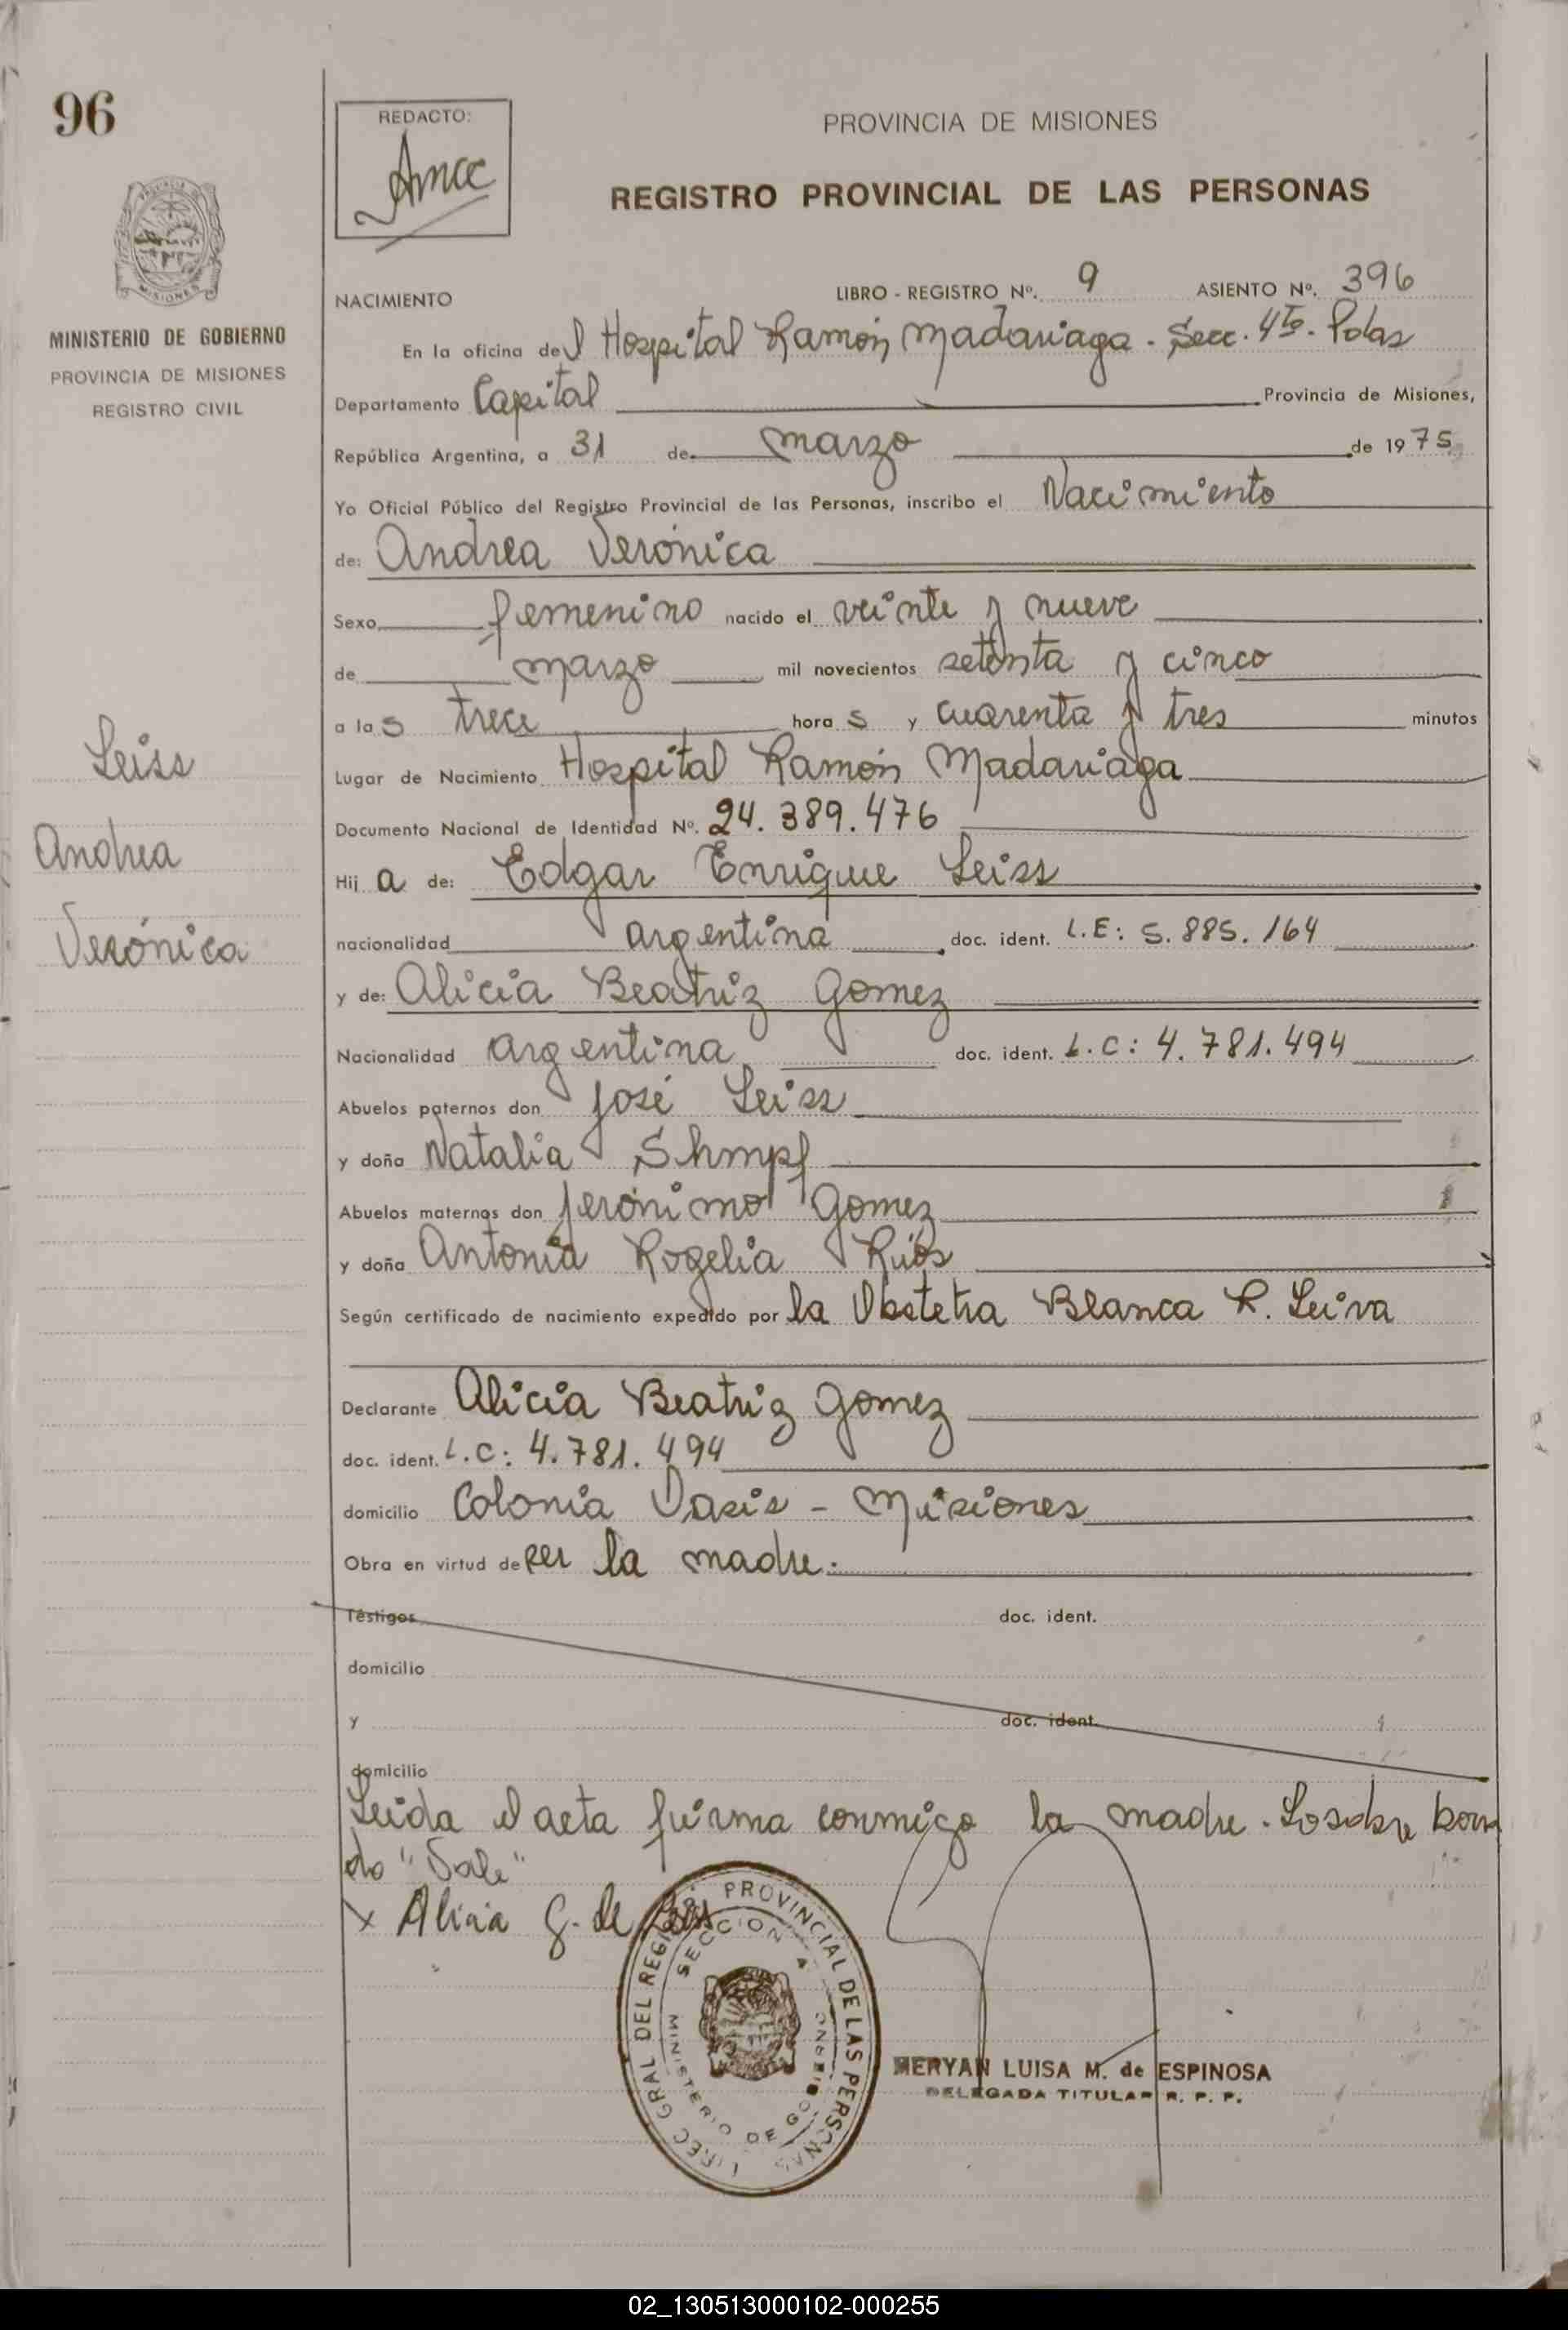 96
REDACTO:
PROVINCIA DE MISIONES
REGISTRO PROVINCIAL DE LAS PERSONAS
MISIONES
MINISTERIO DE GOBIERNO
PROVINCIA DE MISIONES
REGISTRO CIVIL
NACIMIENTO LIBRO - REGISTRO Nº. 9 ASIENTO Nº. 396
En la oficina del Hospital Ramón Madariaga - Secc. 4ta. Pdas
Departamento Capital Provincia de Misiones,
República Argentina, a 31 de marzo de 1975
Yo Oficial Público del Registro Provincial de las Personas, inscribo el Nacimiento
de: Andrea Verónica
Sexo femenino nacido el veinte y nueve
de marzo mil novecientos setenta y cinco
a las trece horas y cuarenta y tres minutos
Lugar de Nacimiento Hospital Ramón Madariaga
Documento Nacional de Identidad Nº. 24.389.476
Hija de: Edgar Enrique Leiss
nacionalidad argentina doc. ident. L.E: 5.885.164
y de: Alicia Beatriz Gomez
Nacionalidad argentina doc. ident. L.C: 4.781.494
Abuelos paternos don José Leiss
y doña Natalia Shmpf
Abuelos maternos don Jerónimo Gomez
y doña Antonia Rogelia Ríos
Según certificado de nacimiento expedido por la Obstetra Blanca R. Leiva
Declarante Alicia Beatriz Gomez
doc. ident. L.C: 4.781.494
domicilio Colonia Oasis - Misiones
Obra en virtud de ser la madre.
Testigos doc. ident.
domicilio
y doc. ident.
domicilio
Leida el acta firma conmigo la madre. Lo sobre borra
do "Vale"
x Alicia G. de Leiss
Leiss
Andrea
Verónica
DIREC GRAL DEL REGISTR. PROVINCIAL DE LAS PERSONAS
SECCION A
MINISTERIO DE GOBIERNO
MERYAN LUISA M. de ESPINOSA
DELEGADA TITULAR R. P. P.
02_130513000102-000255